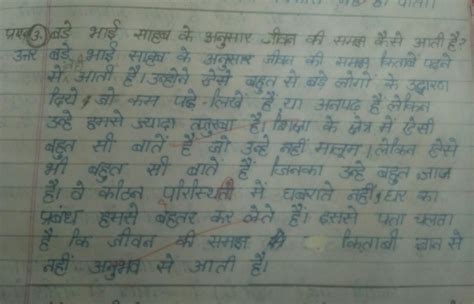 प्रश्न 3. बड़े भाई साहब के अनुसार जीवन की समझ कैसे आती है?
उत्तर बड़े भाई साहब के अनुसार जीवन की समझ किताबें पढ़ने
से आती है। उन्होंने ऐसे बहुत से बड़े लोगों के उद्धारण
दिये जो कम पढ़े-लिखें है या अनपढ है लेकिन
उन्हे हमसे ज्यादा तजुरबा है। शिक्षा के क्षेत्र में ऐसी
बहुत सी बातें हैं जो उन्हें नहीं मालूम। लेकिन ऐसे
भी बहुत सी बातें हैं जिनका उन्हे बहुत ज्ञान
है। वे कठिन परिस्थिती में घबराते नहीं, घर का
प्रबंध हमसे बहतर कर लेते हैं। इससे पता चलता
है कि जीवन की समझ किताबी ज्ञान से
नहीं अनुभव से आती है।